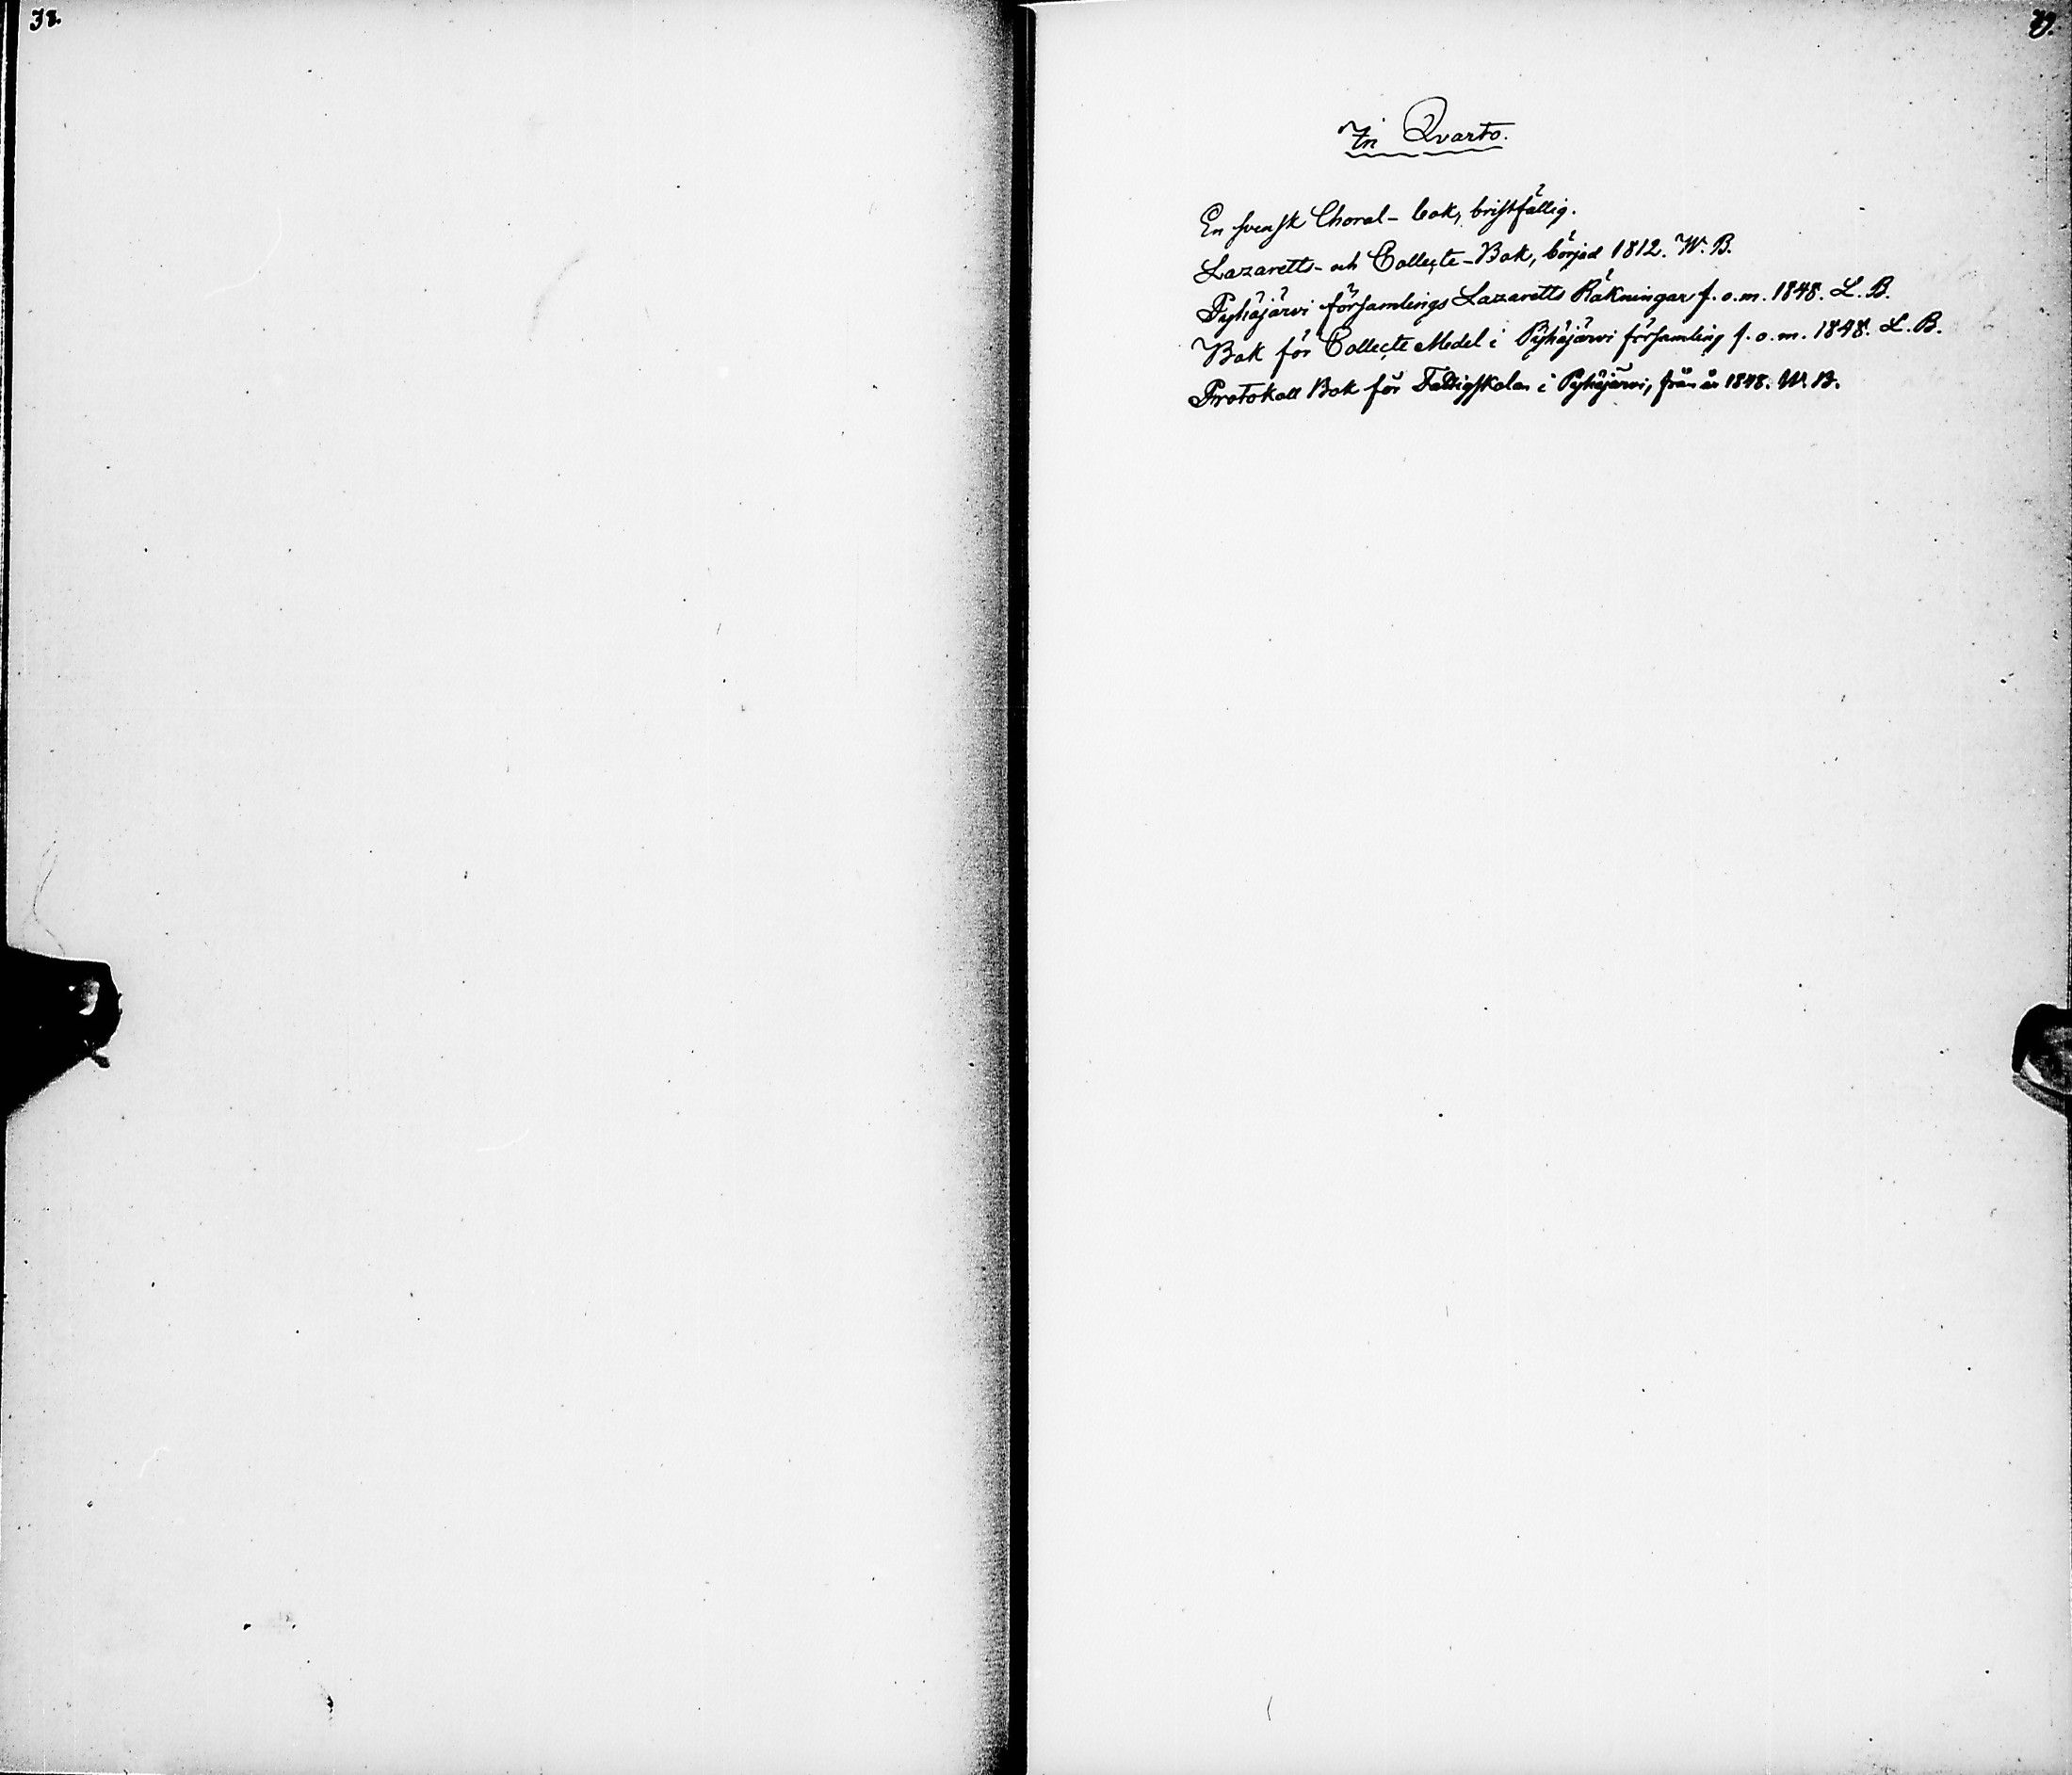 38.
39.
In Qvarto.
En svensk Choral-bok, bristfällig.
Lazaretts- och Collecte-Bok, börjad 1812. W. B.
Pyhäjärvi församlings Lazaretts Räkningar f. o. m. 1848. L. B.
Bok för Collecte Medel i Pyhäjärvi församling f. o. m. 1848. L. B.
Protokoll Bok för Fattigskolan i Pyhäjärvi, från år 1848. W. B.